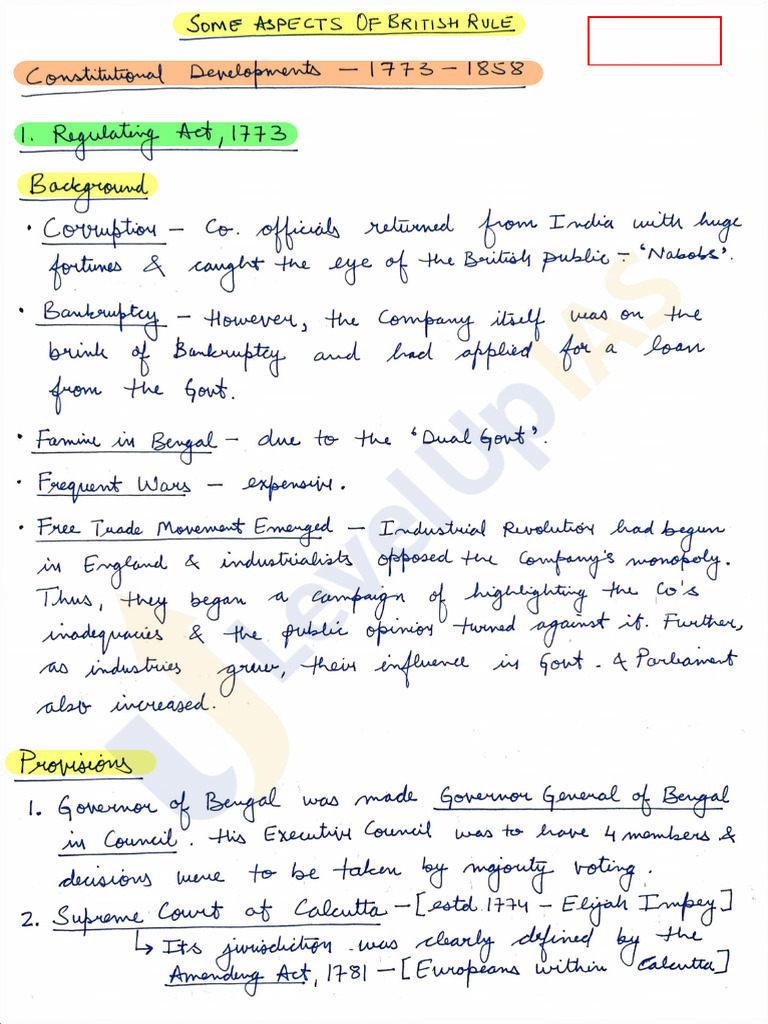 SOME ASPECTS OF BRITISH RULE
Constitutional Developments – 1773 – 1858
1. Regulating Act, 1773
Background
• Corruption – Co. officials returned from India with huge
fortunes & caught the eye of the British public – 'Nabobs'.
• Bankruptcy – However, the Company itself was on the
brink of Bankruptcy and had applied for a loan
from the Govt.
• Famine in Bengal – due to the 'Dual Govt'.
• Frequent Wars – expensive.
• Free Trade Movement Emerged – Industrial Revolution had begun
in England & industrialists opposed the Company's monopoly.
Thus, they began a campaign of highlighting the Co's
inadequacies & the public opinion turned against it. Further,
as industries grew, their influence in Govt. & Parliament
also increased.
Provisions
1. Governor of Bengal was made Governor General of Bengal
in Council. His Executive Council was to have 4 members &
decisions were to be taken by majority voting.
2. Supreme Court at Calcutta – [estd. 1774 – Elijah Impey]
↳ Its jurisdiction was clearly defined by the
Amending Act, 1781 – [Europeans within Calcutta]
LevelUp IAS